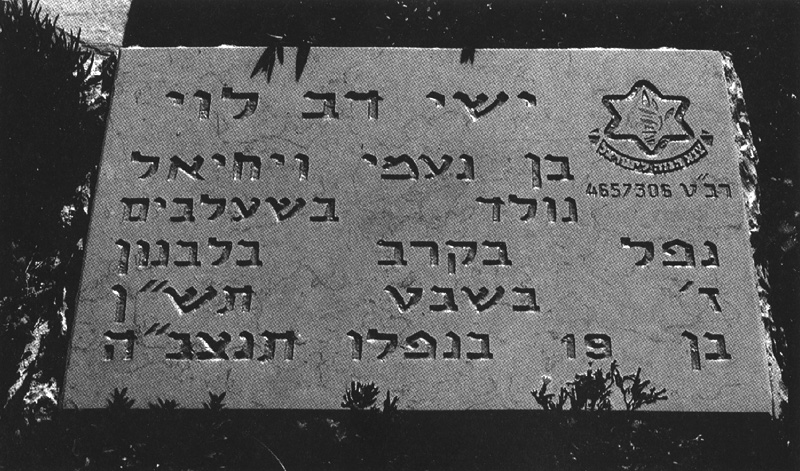 ישי דב לוי
בן נעמי ויחיאל
רב״ט 4657306
נולד בשעלבים
נפל בקרב בלבנון
ז׳ בשבט תש״ן
בן 19 בנפלו תנצב״ה